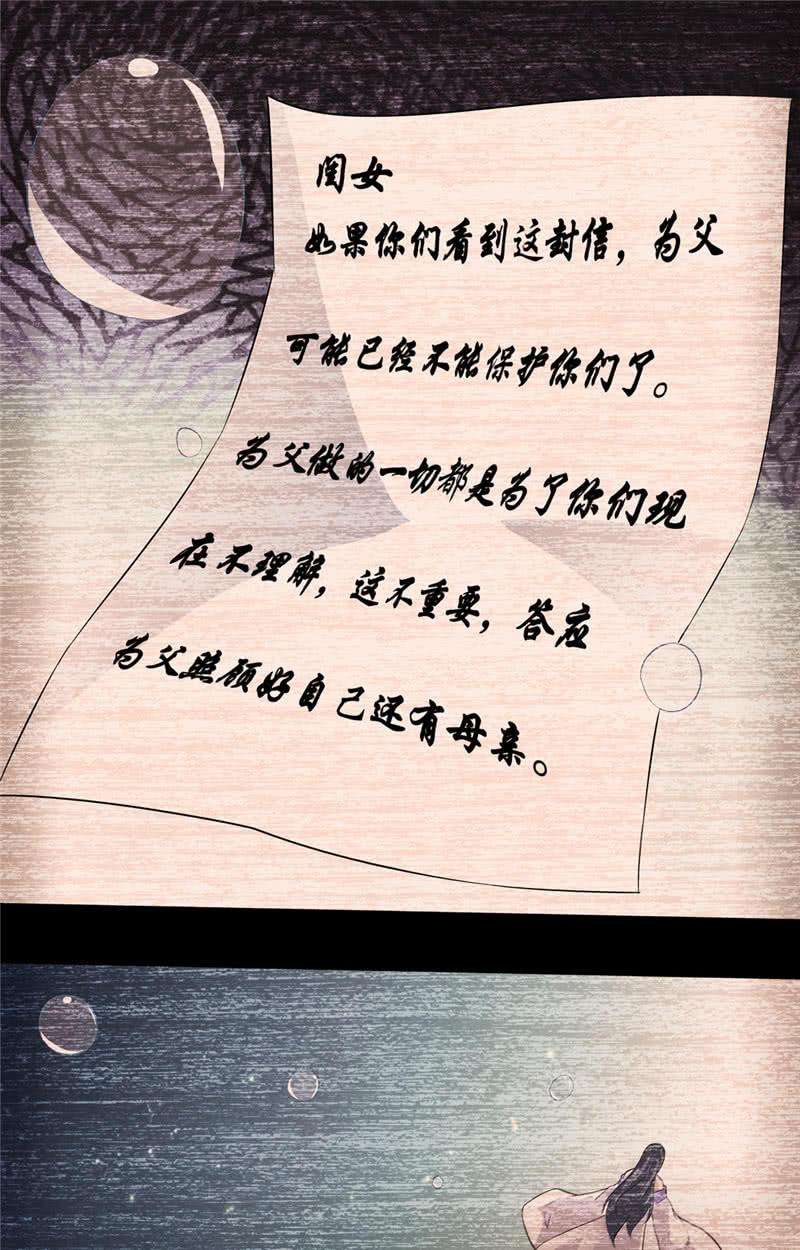 闺女
如果你们看到这封信，为父
可能已经不能保护你们了。
为父做的一切都是为了你们现
在不理解，这不重要，答应
为父照顾好自己还有母亲。